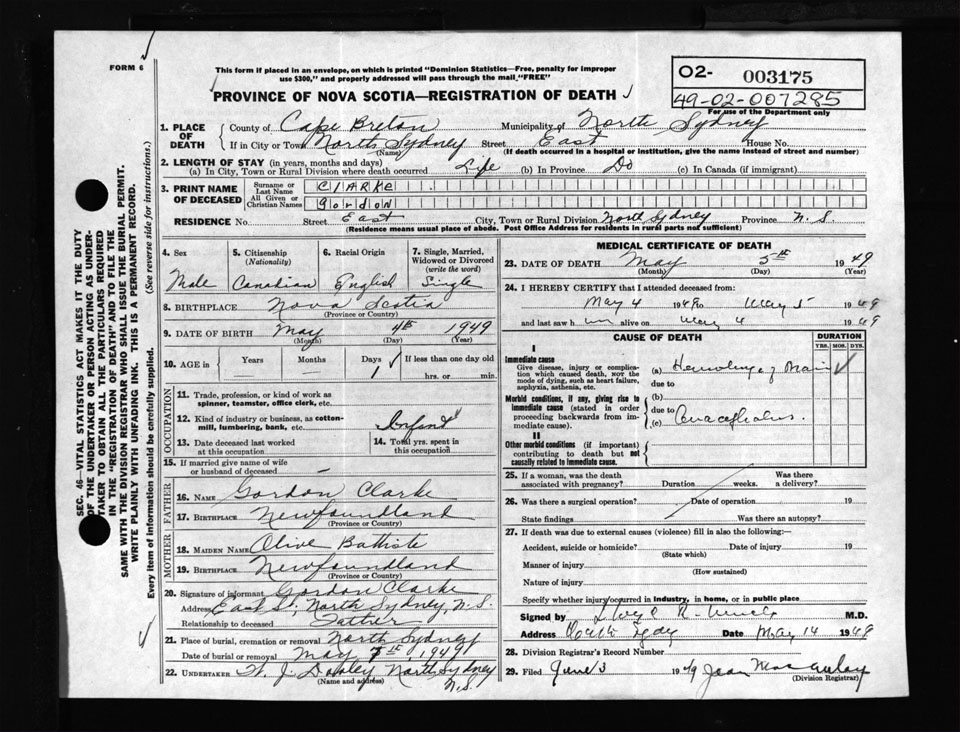 FORM 6
This form if placed in an envelope, on which is printed "Dominion Statistics—Free, penalty for improper
use $300," and properly addressed will pass through the mail "FREE"
PROVINCE OF NOVA SCOTIA—REGISTRATION OF DEATH
O2- 003175
49-02-007285
For use of the Department only
1. PLACE OF DEATH
County of Cape Breton Municipality of North Sydney
If in City or Town North Sydney Street East House No.
(Name) (If death occurred in a hospital or institution, give the name instead of street and number)
2. LENGTH OF STAY (in years, months and days)
(a) In City, Town or Rural Division where death occurred Life (b) In Province Do (c) In Canada (if immigrant)
3. PRINT NAME OF DECEASED
Surname or Last Name ClARKe
All Given or Christian Names GORDON
RESIDENCE No. Street East City, Town or Rural Division North Sydney Province N. S.
(Residence means usual place of abode. Post Office Address for residents in rural parts not sufficient)
4. Sex Male
5. Citizenship (Nationality) Canadian
6. Racial Origin English
7. Single, Married, Widowed or Divorced (write the word) Single
8. BIRTHPLACE Nova Scotia
(Province or Country)
9. DATE OF BIRTH May 4th 1949
(Month) (Day) (Year)
10. AGE in Years Months Days 1 If less than one day old
hrs. or min.
OCCUPATION
11. Trade, profession, or kind of work as
spinner, teamster, office clerk, etc.
12. Kind of industry or business, as cotton-
mill, lumbering, bank, etc. Infant
13. Date deceased last worked
at this occupation
14. Total yrs. spent in
this occupation
15. If married give name of wife
or husband of deceased —
FATHER
16. NAME Gordon Clarke
17. BIRTHPLACE Newfoundland
(Province or Country)
MOTHER
18. MAIDEN NAME Olive Battiste
19. BIRTHPLACE Newfoundland
(Province or Country)
20. Signature of informant Gordon Clarke
Address East St, North Sydney, N. S.
Relationship to deceased Father
21. Place of burial, cremation or removal North Sydney
Date of burial or removal May 1949
22. UNDERTAKER J. North Sydney
(Name and address) N.S.
MEDICAL CERTIFICATE OF DEATH
23. DATE OF DEATH May 5th 1949
(Month) (Day) (Year)
24. I HEREBY CERTIFY that I attended deceased from:
May 4 1949 to May 5 1949
and last saw him alive on May 4 1949
CAUSE OF DEATH DURATION
YRS. MOS. DYS.
I
Immediate cause
Give disease, injury or compli-
cation which caused death, not the
mode of dying, such as heart failure,
asphyxia, asthenia, etc.
(a) of
due to
Morbid conditions, if any, giving rise to
immediate cause (stated in order
proceeding backwards from im-
mediate cause).
(b)
due to
(c)
II
Other morbid conditions (if important)
contributing to death but not
causally related to immediate cause.
25. If a woman, was the death
associated with pregnancy? Duration weeks. Was there
a delivery?
26. Was there a surgical operation? Date of operation 19
State findings Was there an autopsy?
27. If death was due to external causes (violence) fill in also the following:—
Accident, suicide or homicide? Date of injury 19
(State which)
Manner of injury
(How sustained)
Nature of injury
Specify whether injury occurred in industry, in home, or in public place
Signed by M.D.
Address Date May 14 1949
28. Division Registrar's Record Number
29. Filed June 3 1949 Jean
(Division Registrar)
SEC. 46—VITAL STATISTICS ACT MAKES IT THE DUTY
OF THE UNDERTAKER OR PERSON ACTING AS UNDER-
TAKER TO OBTAIN ALL THE PARTICULARS REQUIRED
IN THE "REGISTRATION OF DEATH" AND TO FILE THE
SAME WITH THE DIVISION REGISTRAR WHO SHALL ISSUE THE BURIAL PERMIT.
WRITE PLAINLY WITH UNFADING INK. THIS IS A PERMANENT RECORD.
Every item of information should be carefully supplied. (See reverse side for instructions.)